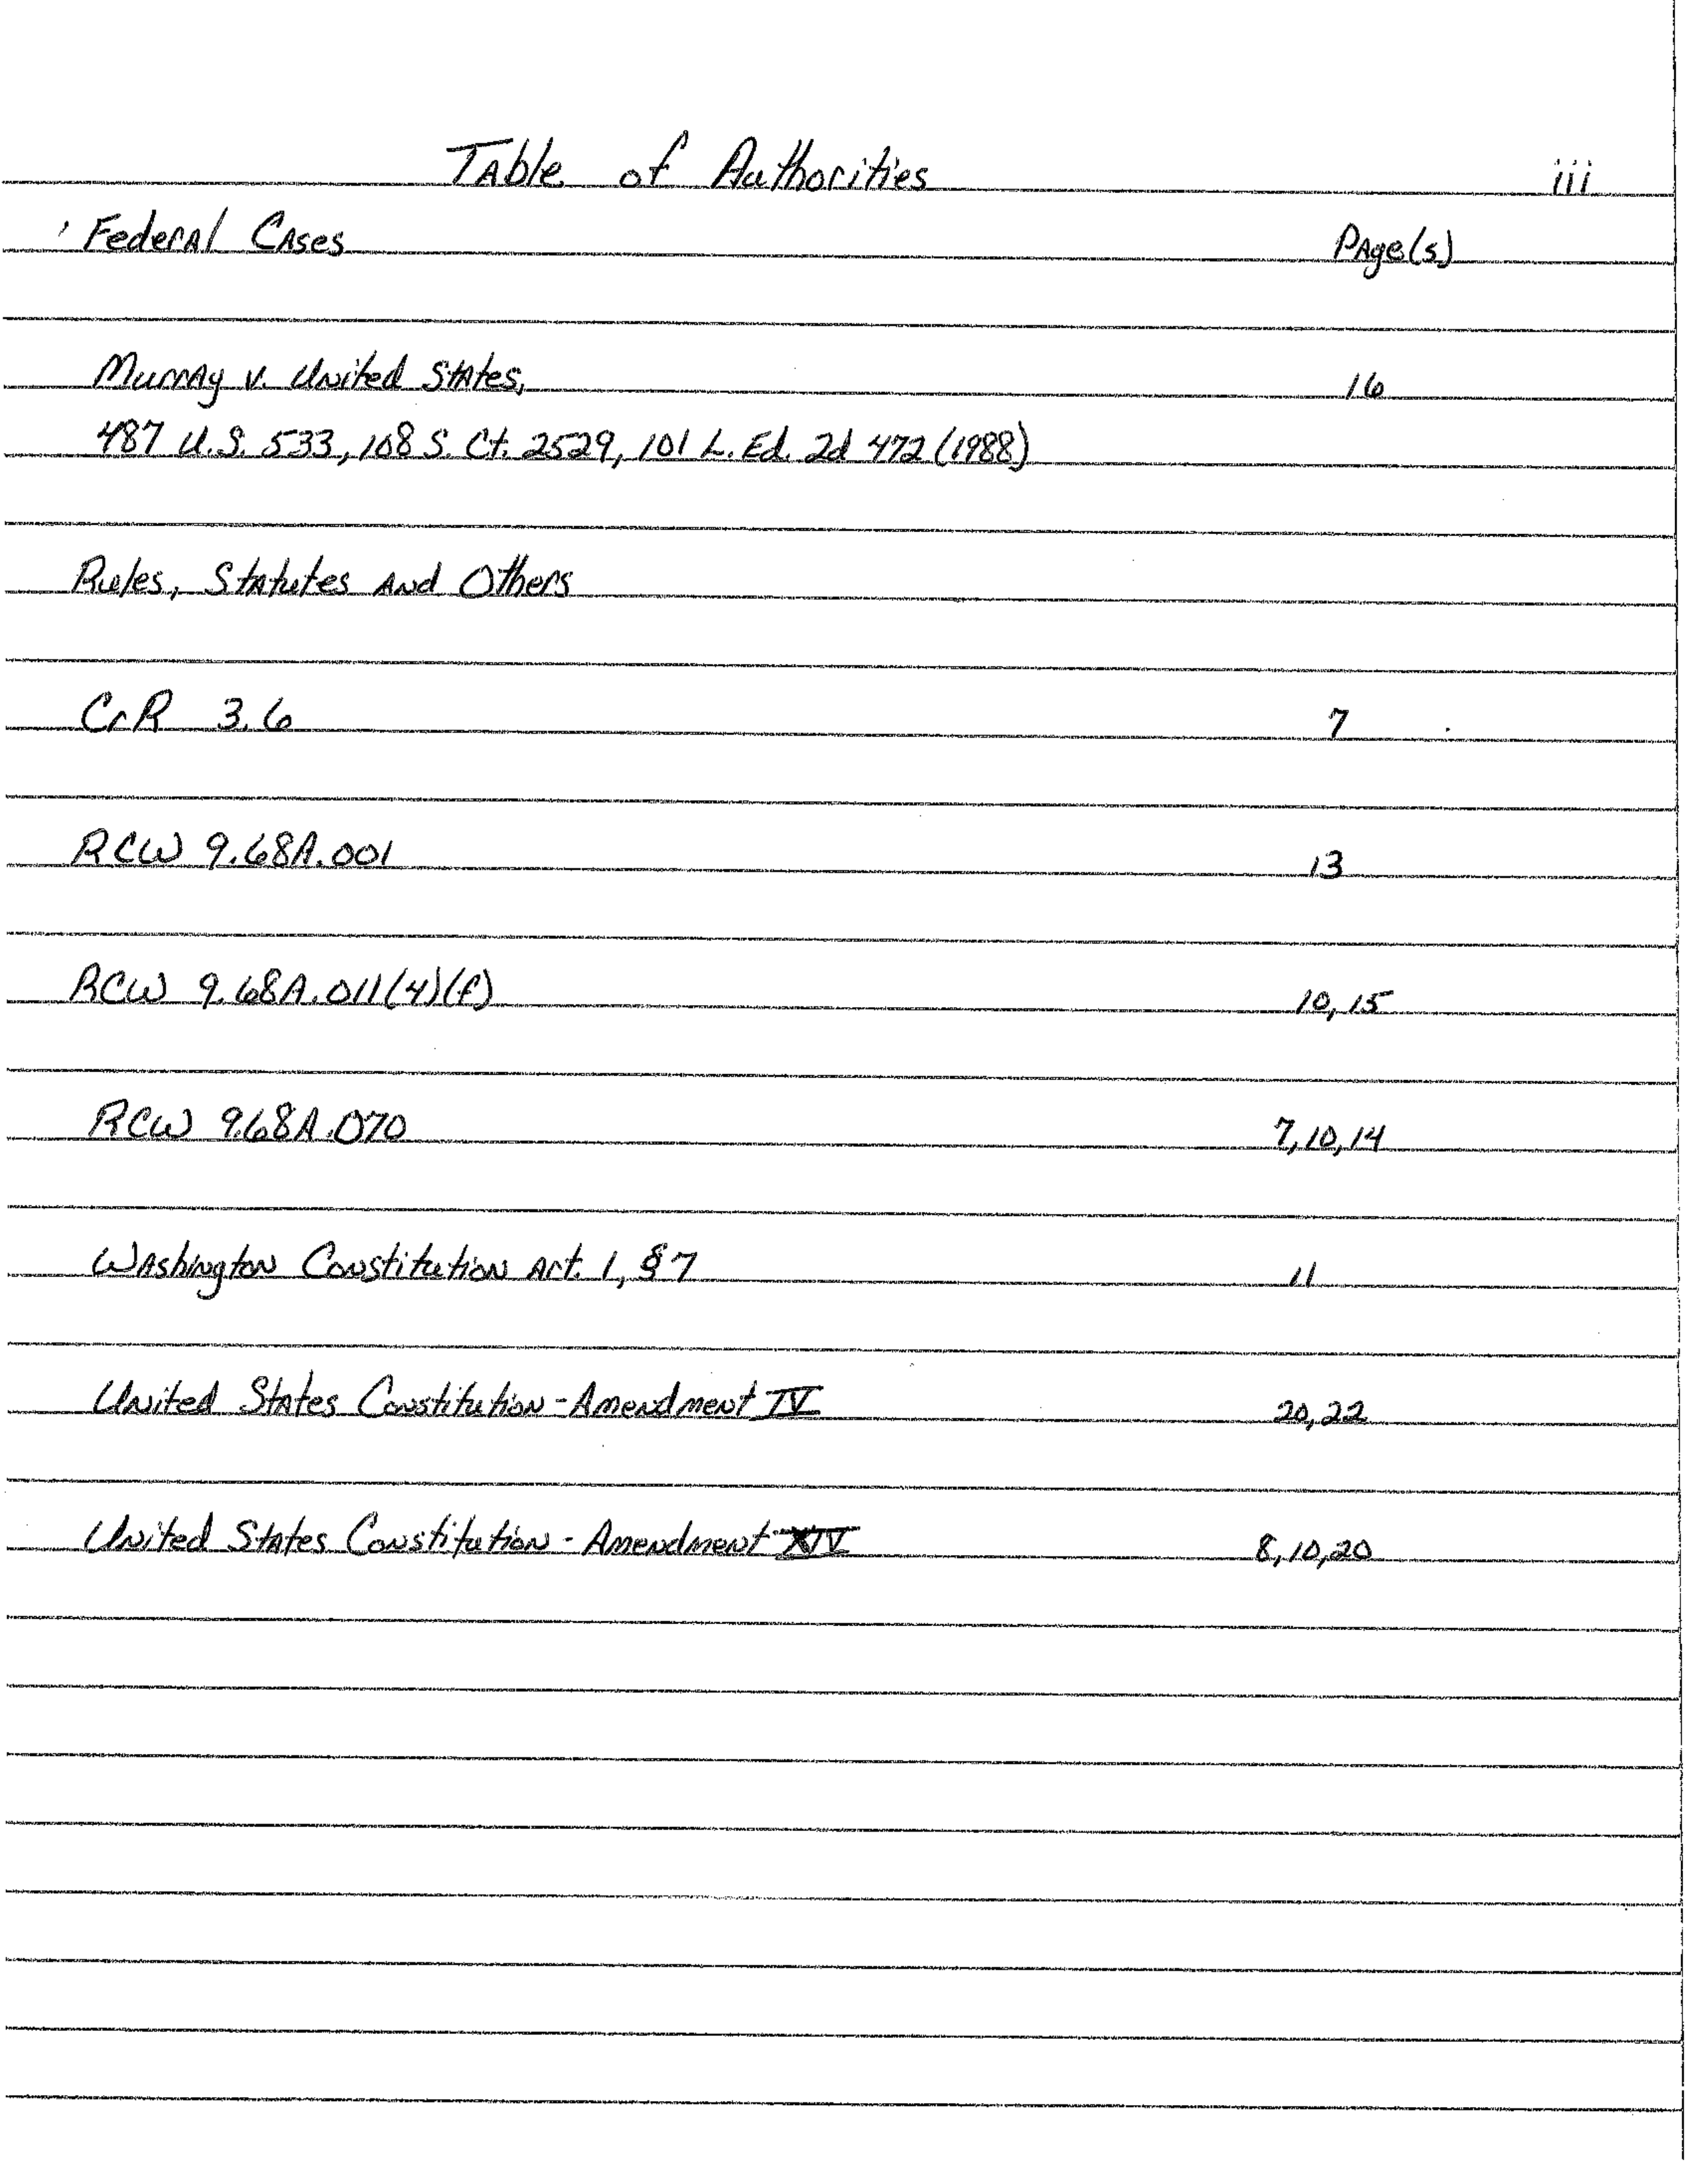 Table of Authorities iii
Federal Cases Page(s)
Murray v. United States, 16
487 U.S. 533, 108 S. Ct. 2529, 101 L. Ed. 2d 472 (1988)
Rules, Statutes and Others
CrR 3.6 7
RCW 9.68A.001 13
RCW 9.68A.011(4)(f) 10, 15
RCW 9.68A.070 7, 10, 14
Washington Constitution Art. 1, § 7 11
United States Constitution - Amendment IV 20, 22
United States Constitution - Amendment XIV 8, 10, 20